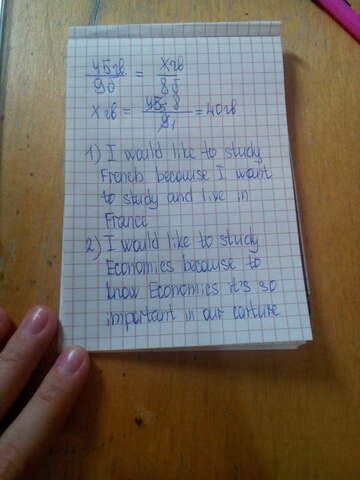 45гв = Xгв
9б 8б
Xгв = 45 5 8 = 40гв
9 1
1) I would like to study
French because I want
to study and live in
France
2) I would like to study
Economics because to
know Economics it's so
important in our